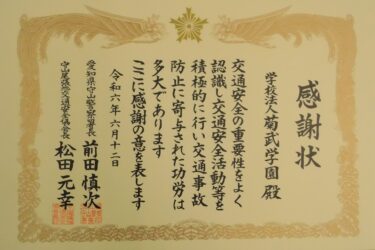 感謝状
学校法人菊武学園 殿
交通安全の重要性をよく
認識し交通安全活動等を
積極的に行い交通事故
防止に寄与された功労は
多大であります
ここに感謝の意を表します
令和六年六月十二日
愛知県守山警察署長 前田慎次
守山尾張旭交通安全協会長 松田元幸